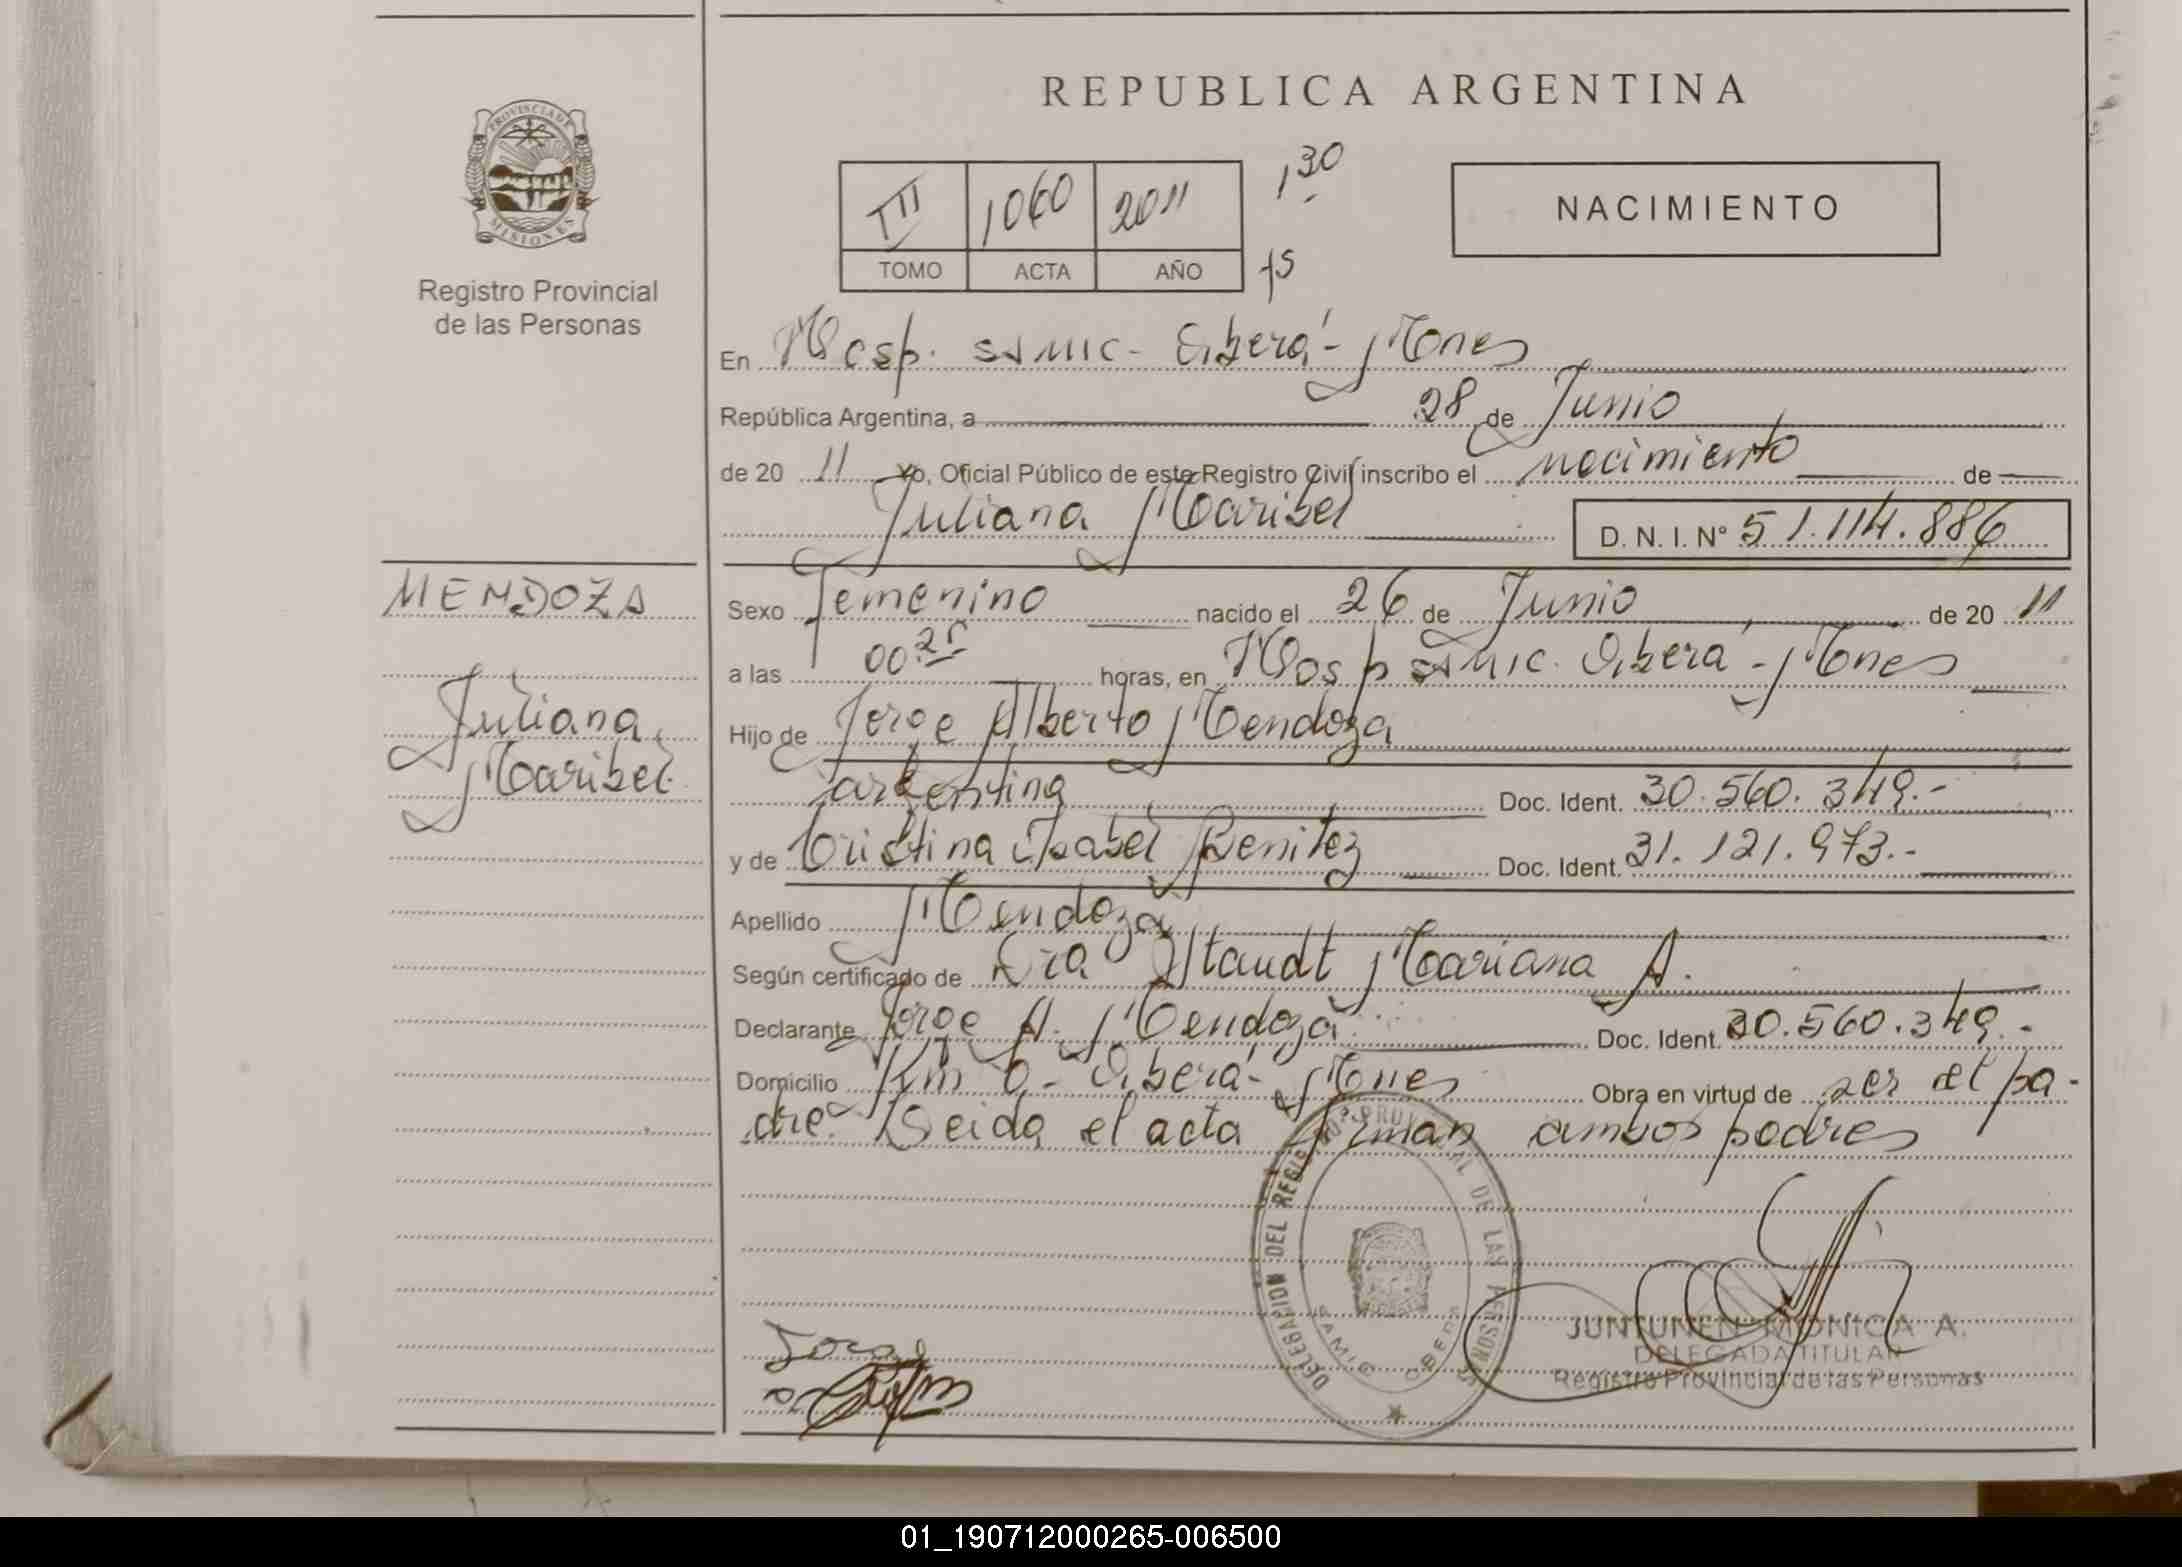 REPUBLICA ARGENTINA
PROVINCIA DE MISIONES
Registro Provincial
de las Personas
III 1060 2011
TOMO ACTA AÑO
1 30
15
NACIMIENTO
En Hosp. SAMIC - Oberá - Mnes
República Argentina, a 28 de Junio
de 20 11 Yo, Oficial Público de este Registro Civil inscribo el nacimiento de
Juliana Maribel D. N. I. Nº 51.114.886
MENDOZA
Juliana
Maribel
Sexo Femenino nacido el 26 de Junio de 20 11
a las 00.25 horas, en Hosp SAMIC. Oberá - Mnes
Hijo de Jorge Alberto Mendoza
argentina Doc. Ident. 30.560.349.-
y de Cristina Isabel Benitez Doc. Ident. 31.121.973.-
Apellido Mendoza
Según certificado de Dra Staudt Mariana A.
Declarante Jorge A. Mendoza Doc. Ident. 30.560.349.-
Domicilio Km 0 - Oberá - Mnes Obra en virtud de ser el pa-
dre. Leida el acta firman ambos padres
DELEGACION DEL REGISTRO PROVINCIAL DE LAS PERSONAS
SAMIC OBERA
Jorge
JUNTUNEN MONICA A.
DELEGADA TITULAR
Registro Provincial de las Personas
01_190712000265-006500